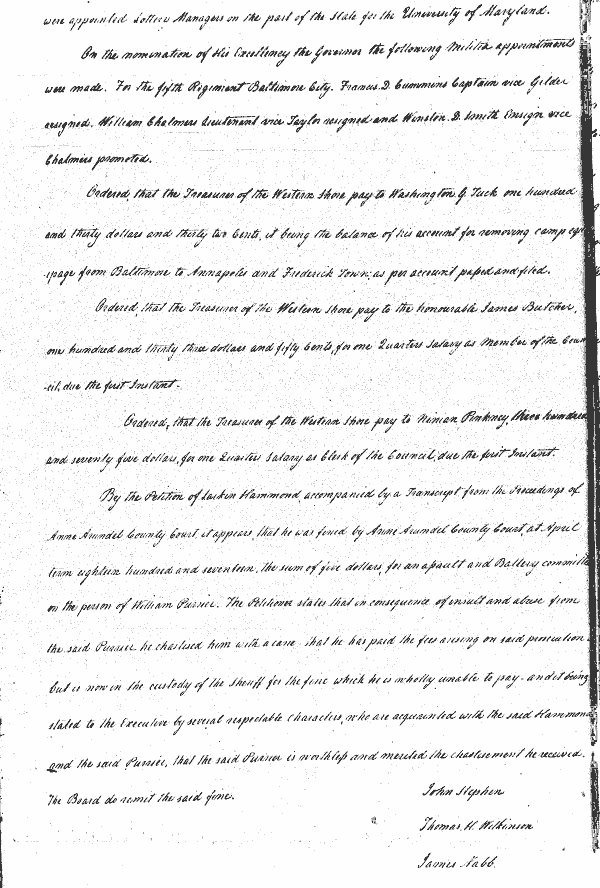 were appointed Lottery Managers on the part of the State for the University of Maryland.
On the nomination of His Excellency the Governor the following Militia appointments
were made. For the fifth Regiment Baltimore City. Francis D. Cummins Captain vice Gilder
resigned. William Chalmers Lieutenant vice Taylor resigned and Winston D. Smith Ensign vice
Chalmers promoted.
Ordered, that the Treasurer of the Western Shore pay to Washington G. Tuck one hundred
and thirty dollars and thirty two Cents, it being the balance of his account for removing camp equ
ipage from Baltimore to Annapolis and Frederick Town, as per account passed and filed.
Ordered, that the Treasurer of the Western Shore pay to the honourable James Butcher,
one hundred and thirty three dollars and fifty Cents, for one Quarters Salary as Member of the Coun
-cil, due the first Instant.
Ordered, that the Treasurer of the Western Shore pay to Ninian Pinkney, three hundred
and seventy five dollars, for one Quarters Salary as Clerk of the Council, due the first Instant.
By the Petition of Larkin Hammond, accompanied by a Transcript from the Proceedings of
Anne Arundel County Court, it appears, that he was fined by Anne Arundel County Court, at April
term eighteen hundred and seventeen, the sum of five dollars, for an assault and Battery committed
on the person of William Purnier. The Petitioner states that in consequence of insult and abuse from
the said Purnier he chastised him with a cane - that he has paid the fees arising on said prosecution
but is now in the custody of the Sheriff for the fine which he is wholly unable to pay - and it being
stated to the Executive by several respectable Characters, who are acquainted with the said Hammond
and the said Purnier, that the said Purnier is worthless and merited the chastisement he received.
The Board do remit the said fine.
John Stephen
Thomas H. Wilkinson
James Nabb.